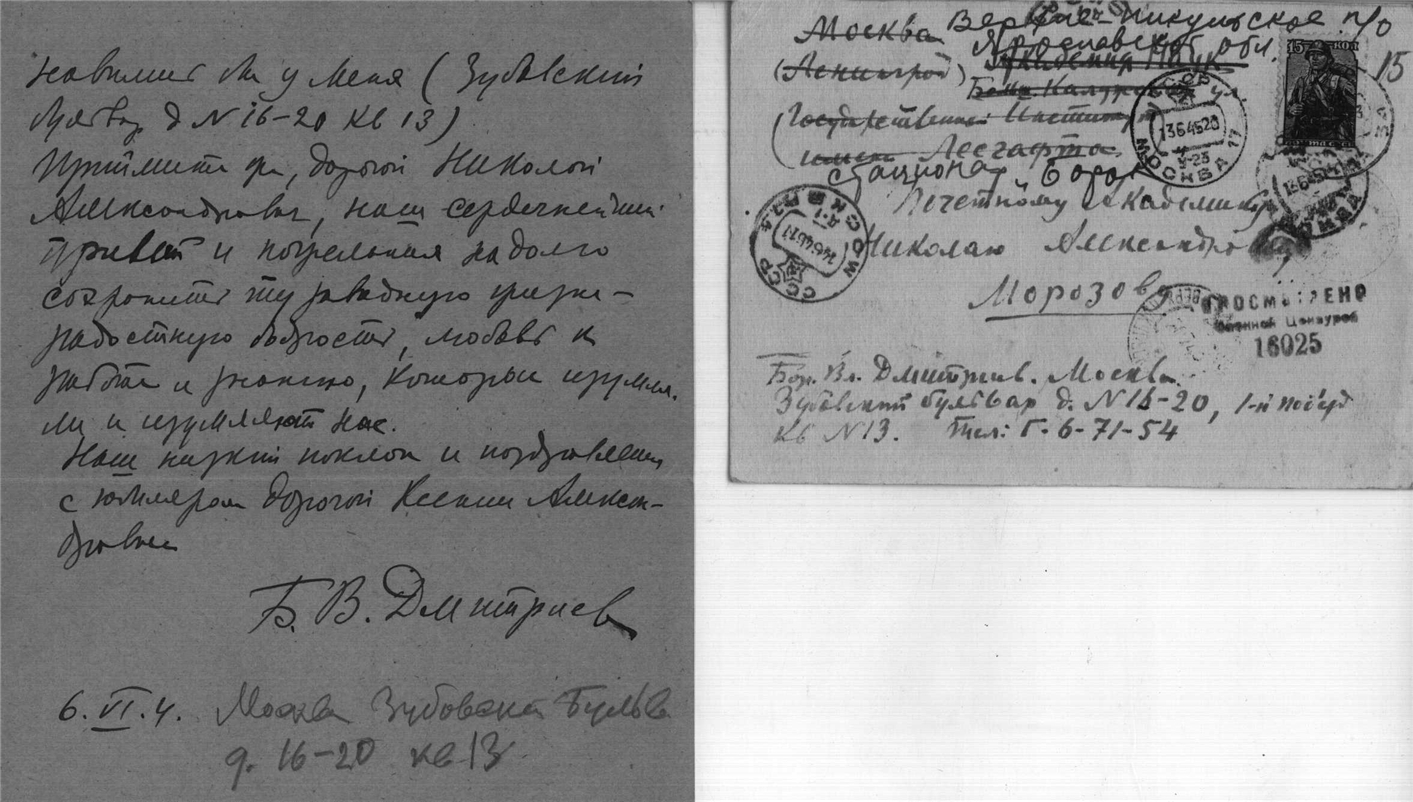 новились ли у меня (Зубовский
бульвар д N 16-20 кв 13)
Примите же, дорогой Николай
Александрович, наш сердечнейший
привет и пожелания надолго
сохранить ту завидную жизне-
радостную бодрость, любовь к
работе и знанию, которые изумля-
ли и изумляют нас.
Наш низкий поклон и поздравления
с юбиляром дорогой Ксении Алексан-
дровне
Б. В. Дмитриев
6. VI. 4. Москва Зубовский Бульва
д. 16-20 кв 13
Москва Верхне-Никульское п/о
Ярославской обл.
(Ленинград) Академия Наук
Больш. Калужская ул.
(Государственный Институт
имени Лесгафта
стационар Борок
Почетному Академику
Николаю Александро
Морозову
15 КОП
15
СССР
13645 20
МОСКВА
СССР
МОСКВА
ПРОСМОТРЕНО
Военной Цензурой
16025
Бор. Вл. Дмитриев. Москва
Зубовский бульвар д. N 16-20, 1-й под'езд
кв N 13. Тел: Г-6-71-54